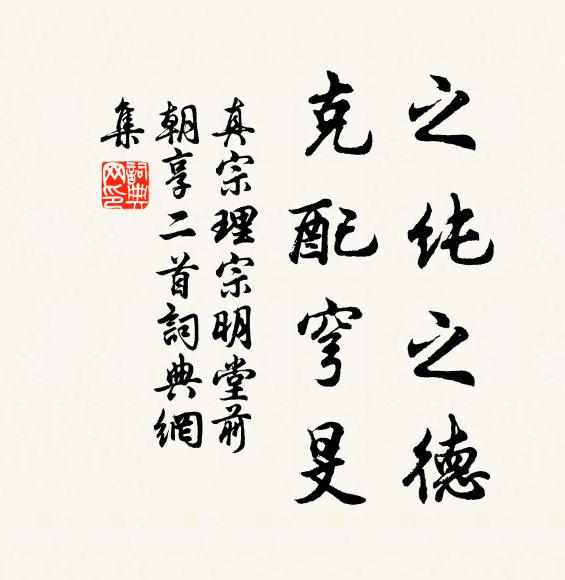 之纯之德
克配穹旻
真宗理宗明堂前
朝享二首詞典網
集
詞典网印